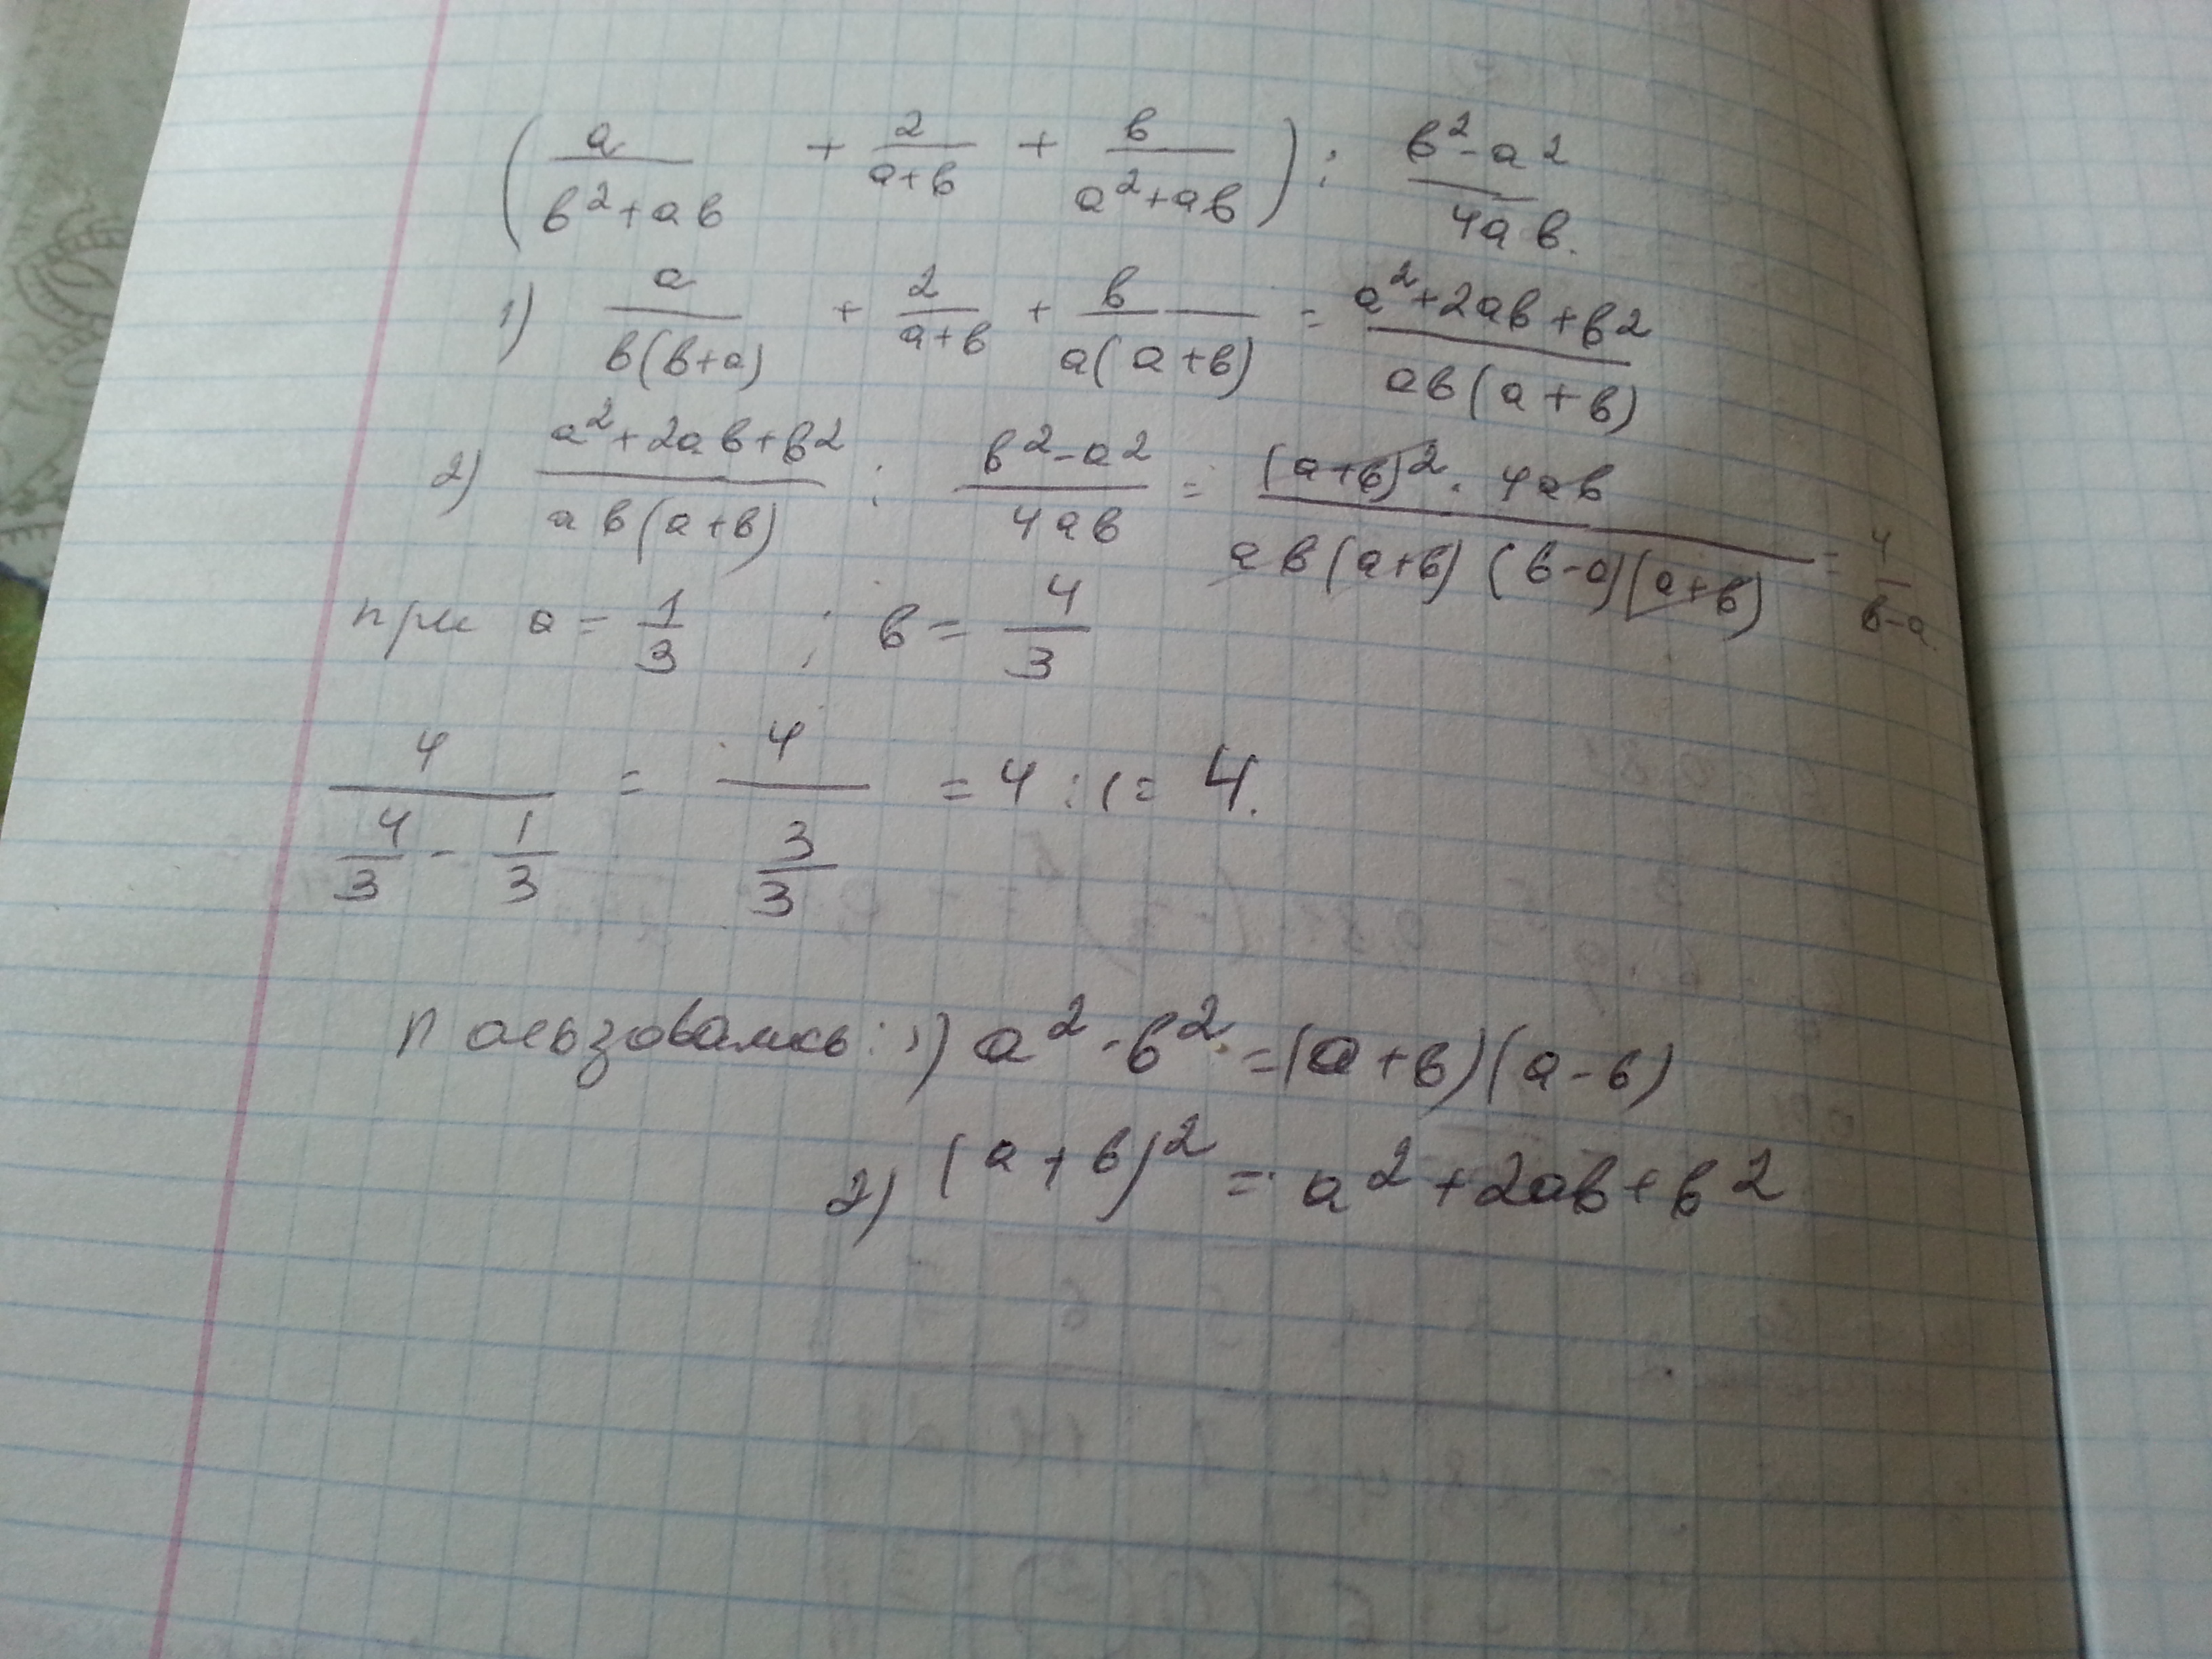 (a/(b²+ab) + 2/(a+b) + b/(a²+ab)) : (b²-a²)/(4ab).
1) a/(b(b+a)) + 2/(a+b) + b/(a(a+b)) = (a²+2ab+b²)/(ab(a+b))
2) (a²+2ab+b²)/(ab(a+b)) : (b²-a²)/(4ab) = ((a+b)²·4ab)/(ab(a+b)(b-a)(a+b)) = 4/(b-a).
при a = 1/3 ; b = 4/3
4/(4/3 - 1/3) = 4/(3/3) = 4 : 1 = 4.
Пользовались: 1) a² - b² = (a+b)(a-b)
2) (a+b)² = a²+2ab+b²